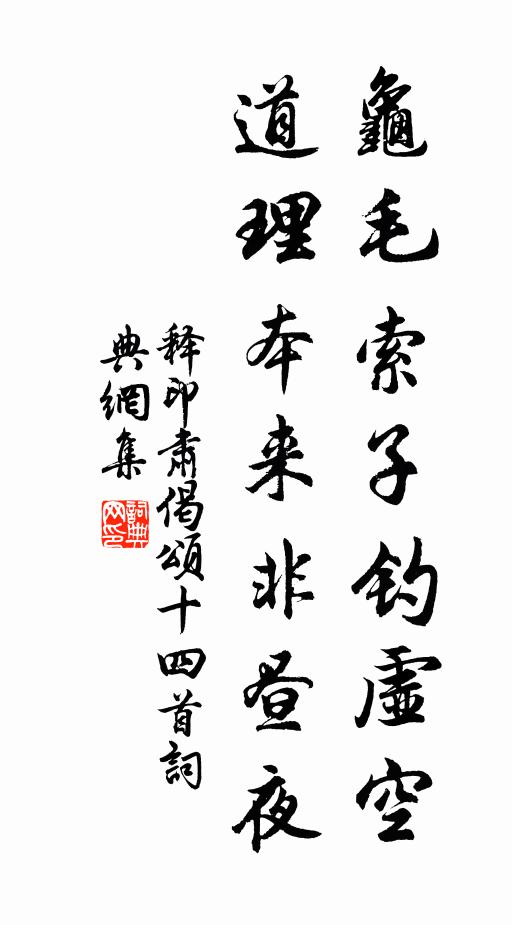 龜毛索子釣虛空
道理本来非昼夜
释印肃偈頌十四首詞
典網集
詞典网印